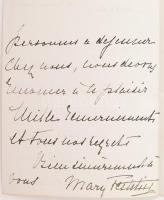 personnes a dejeuner
chez nous, nous devons
renoncer a ce plaisir
Mille remerciements
et tous nos regrets
Bien sincèrement à
vous Mary